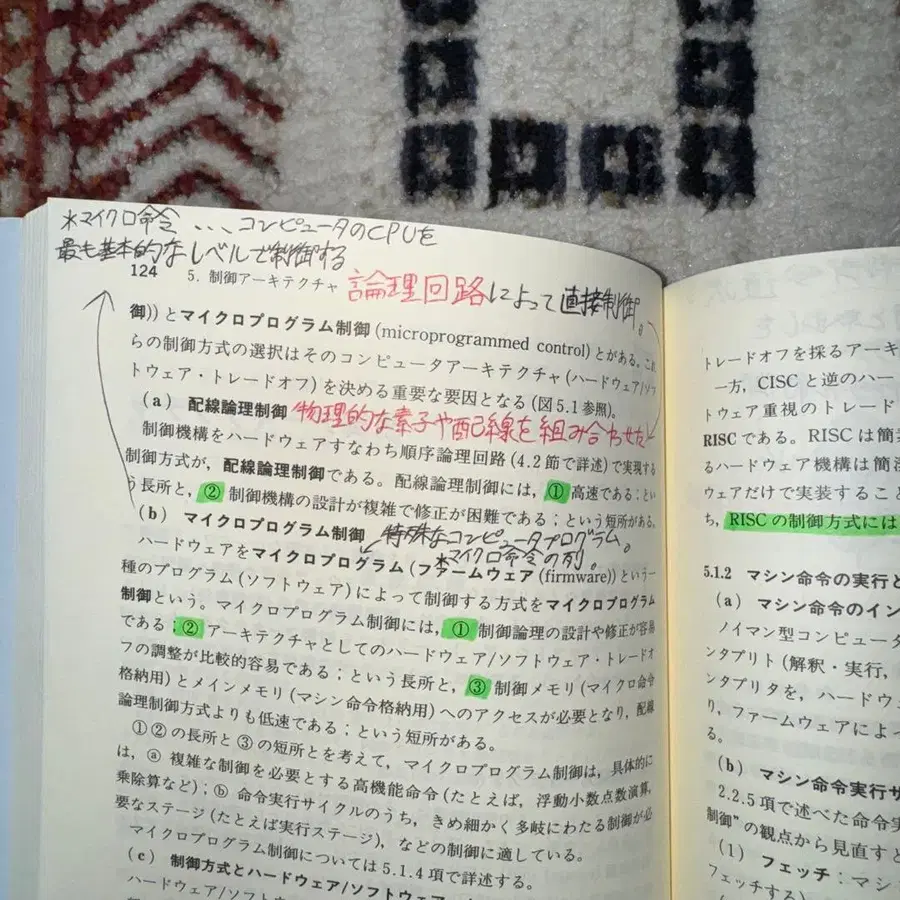 *マイクロ命令 ... コンピュータのCPUを
最も基本的なレベルで制御する
124 5. 制御アーキテクチャ
論理回路によって直接制御。
御))とマイクロプログラム制御(microprogrammed control)とがある。これ
らの制御方式の選択はそのコンピュータアーキテクチャ(ハードウェア/ソフ
トウェア・トレードオフ)を決める重要な要因となる(図5.1参照)。
(a) 配線論理制御 物理的な素子や配線を組み合わせた
制御機構をハードウェアすなわち順序論理回路(4.2節で詳述)で実現する
制御方式が,配線論理制御である。配線論理制御には,① 高速である;とい
う長所と,② 制御機構の設計が複雑で修正が困難である;という短所がある。
(b) マイクロプログラム制御 特殊なコンピュータプログラム。
*マイクロ命令の列。
ハードウェアをマイクロプログラム(ファームウェア(firmware))という一
種のプログラム(ソフトウェア)によって制御する方式をマイクロプログラム
制御という。マイクロプログラム制御には,① 制御論理の設計や修正が容易
である;② アーキテクチャとしてのハードウェア/ソフトウェア・トレードオ
フの調整が比較的容易である;という長所と,③ 制御メモリ(マイクロ命令
格納用)とメインメモリ(マシン命令格納用)へのアクセスが必要となり,配線
論理制御方式よりも低速である;という短所がある。
①②の長所と③の短所とを考えて,マイクロプログラム制御は,具体的に
は,ⓐ 複雑な制御を必要とする高機能命令(たとえば,浮動小数点数演算,
乗除算など);ⓑ 命令実行サイクルのうち,きめ細かく多岐にわたる制御が必
要なステージ(たとえば実行ステージ),などの制御に適している。
マイクロプログラム制御については5.1.4項で詳述する。
(c) 制御方式とハードウェア/ソフトウェア
ハードウェア/ソフト
トレードオフを採るアーキ
一方,CISCと逆のハー
トウェア重視のトレード
RISCである。RISCは簡
るハードウェア機構は簡
ウェアだけで実装するこ
ち,RISCの制御方式には
5.1.2 マシン命令の実行と
(a) マシン命令のイン
ノイマン型コンピュータ
タプリト(解釈・実行,
ンタプリタを,ハードウ
り,ファームウェアによ
る。
(b) マシン命令実行サ
2.2.5項で述べた命令実
制御"の観点から見直すと
(1) フェッチ:マシ
フェッチする)